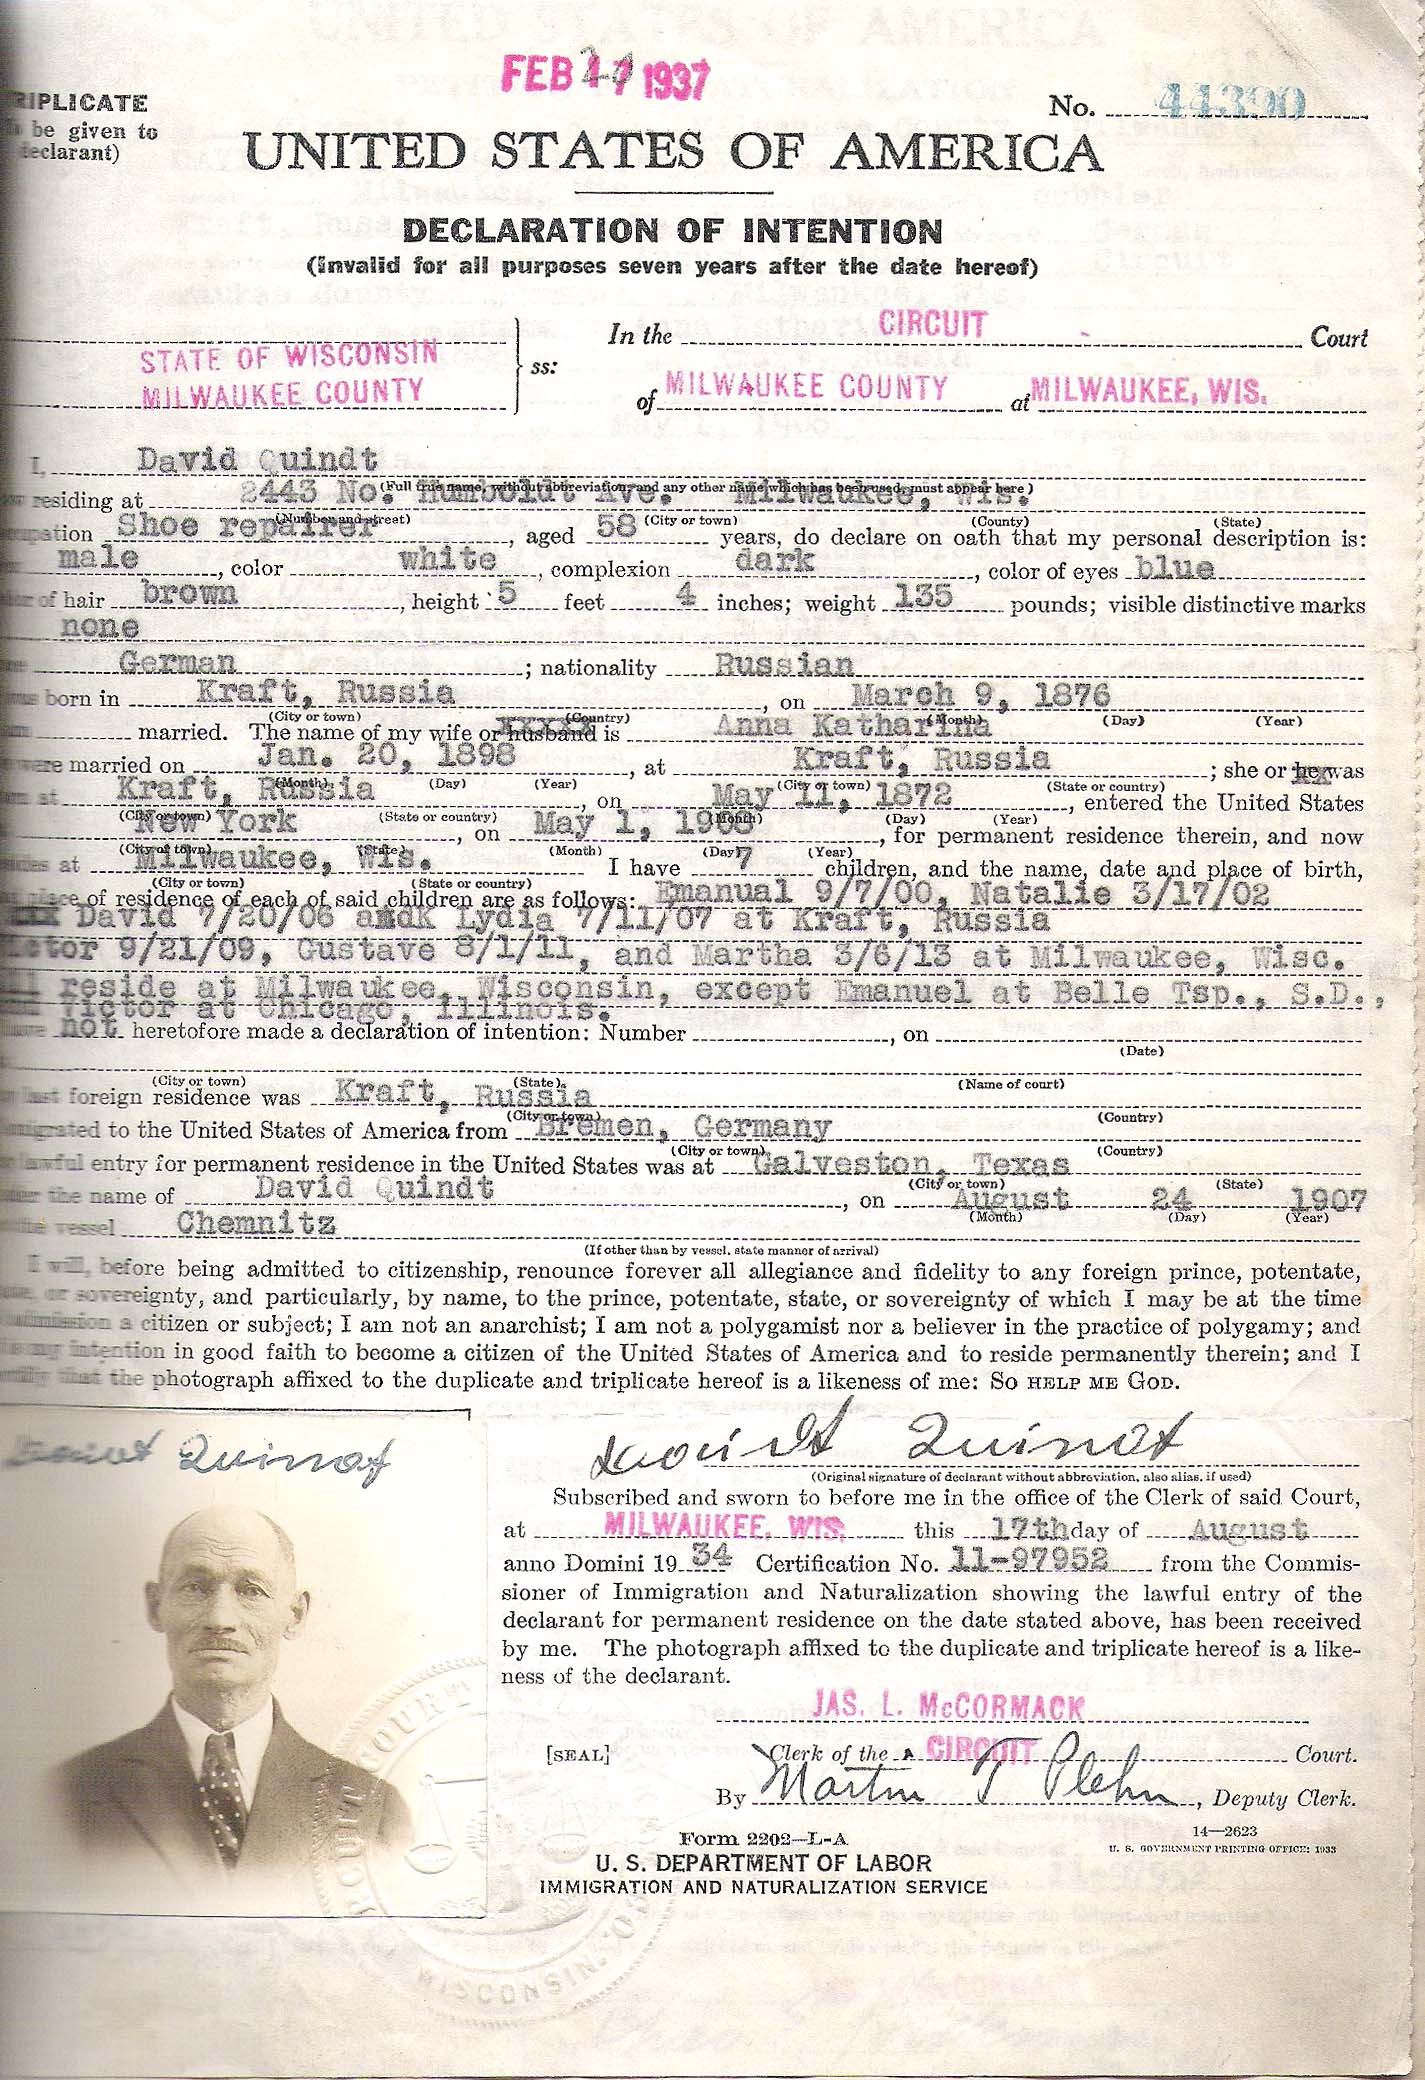 FEB 17 1937
TRIPLICATE
be given to
declarant)
No. 44390
UNITED STATES OF AMERICA
DECLARATION OF INTENTION
(Invalid for all purposes seven years after the date hereof)
STATE OF WISCONSIN
MILWAUKEE COUNTY
ss:
In the CIRCUIT Court
of MILWAUKEE COUNTY at MILWAUKEE, WIS.
I, David Quindt
(Full true name, without abbreviation, and any other name which has been used, must appear here)
residing at 2443 No. Humboldt Ave. Milwaukee, Wis.
(Number and street) (City or town) (County) (State)
Shoe repairer, aged 58 years, do declare on oath that my personal description is:
male, color white, complexion dark, color of eyes blue
of hair brown, height 5 feet 4 inches; weight 135 pounds; visible distinctive marks
none
German; nationality Russian
born in Kraft, Russia, on March 9, 1876
(City or town) (Country) (Month) (Day) (Year)
married. The name of my wife or husband is Anna Katharina
were married on Jan. 20, 1898, at Kraft, Russia; she or he was
(Month) (Day) (Year) (City or town) (State or country)
at Kraft, Russia, on May 11, 1872, entered the United States
(City or town) (State or country) (Month) (Day) (Year)
New York, on May 1, 1908, for permanent residence therein, and now
(City or town) (State) (Month) (Day) (Year)
at Milwaukee, Wis. I have 7 children, and the name, date and place of birth,
(City or town) (State or country)
place of residence of each of said children are as follows: Emanual 9/7/00, Natalie 3/17/02
David 7/20/06 andk Lydia 7/11/07 at Kraft, Russia
9/21/09, Gustave 8/1/11, and Martha 3/6/13 at Milwaukee, Wisc.
reside at Milwaukee, Wisconsin, except Emanuel at Belle Tsp., S.D.,
Victor at Chicago, Illinois.
not heretofore made a declaration of intention: Number , on
(Date)
(City or town) (State) (Name of court)
last foreign residence was Kraft, Russia
(City or town) (Country)
to the United States of America from Bremen, Germany
(City or town) (Country)
lawful entry for permanent residence in the United States was at Galveston, Texas
(City or town) (State)
the name of David Quindt, on August 24 1907
(Month) (Day) (Year)
vessel Chemnitz
(If other than by vessel, state manner of arrival)
I will, before being admitted to citizenship, renounce forever all allegiance and fidelity to any foreign prince, potentate,
or sovereignty, and particularly, by name, to the prince, potentate, state, or sovereignty of which I may be at the time
a citizen or subject; I am not an anarchist; I am not a polygamist nor a believer in the practice of polygamy; and
my intention in good faith to become a citizen of the United States of America and to reside permanently therein; and I
that the photograph affixed to the duplicate and triplicate hereof is a likeness of me: SO HELP ME GOD.
David Quindt
David Quindt
(Original signature of declarant without abbreviation, also alias, if used)
Subscribed and sworn to before me in the office of the Clerk of said Court,
at MILWAUKEE, WIS. this 17th day of August
anno Domini 19 34 Certification No. 11-97952 from the Commis-
sioner of Immigration and Naturalization showing the lawful entry of the
declarant for permanent residence on the date stated above, has been received
by me. The photograph affixed to the duplicate and triplicate hereof is a like-
ness of the declarant.
JAS. L. McCORMACK
[SEAL]
Clerk of the CIRCUIT Court.
By Martin T Plehn, Deputy Clerk.
Form 2202—L-A
U. S. DEPARTMENT OF LABOR
IMMIGRATION AND NATURALIZATION SERVICE
14—2623
U. S. GOVERNMENT PRINTING OFFICE: 1933
COURT
WISCONSIN